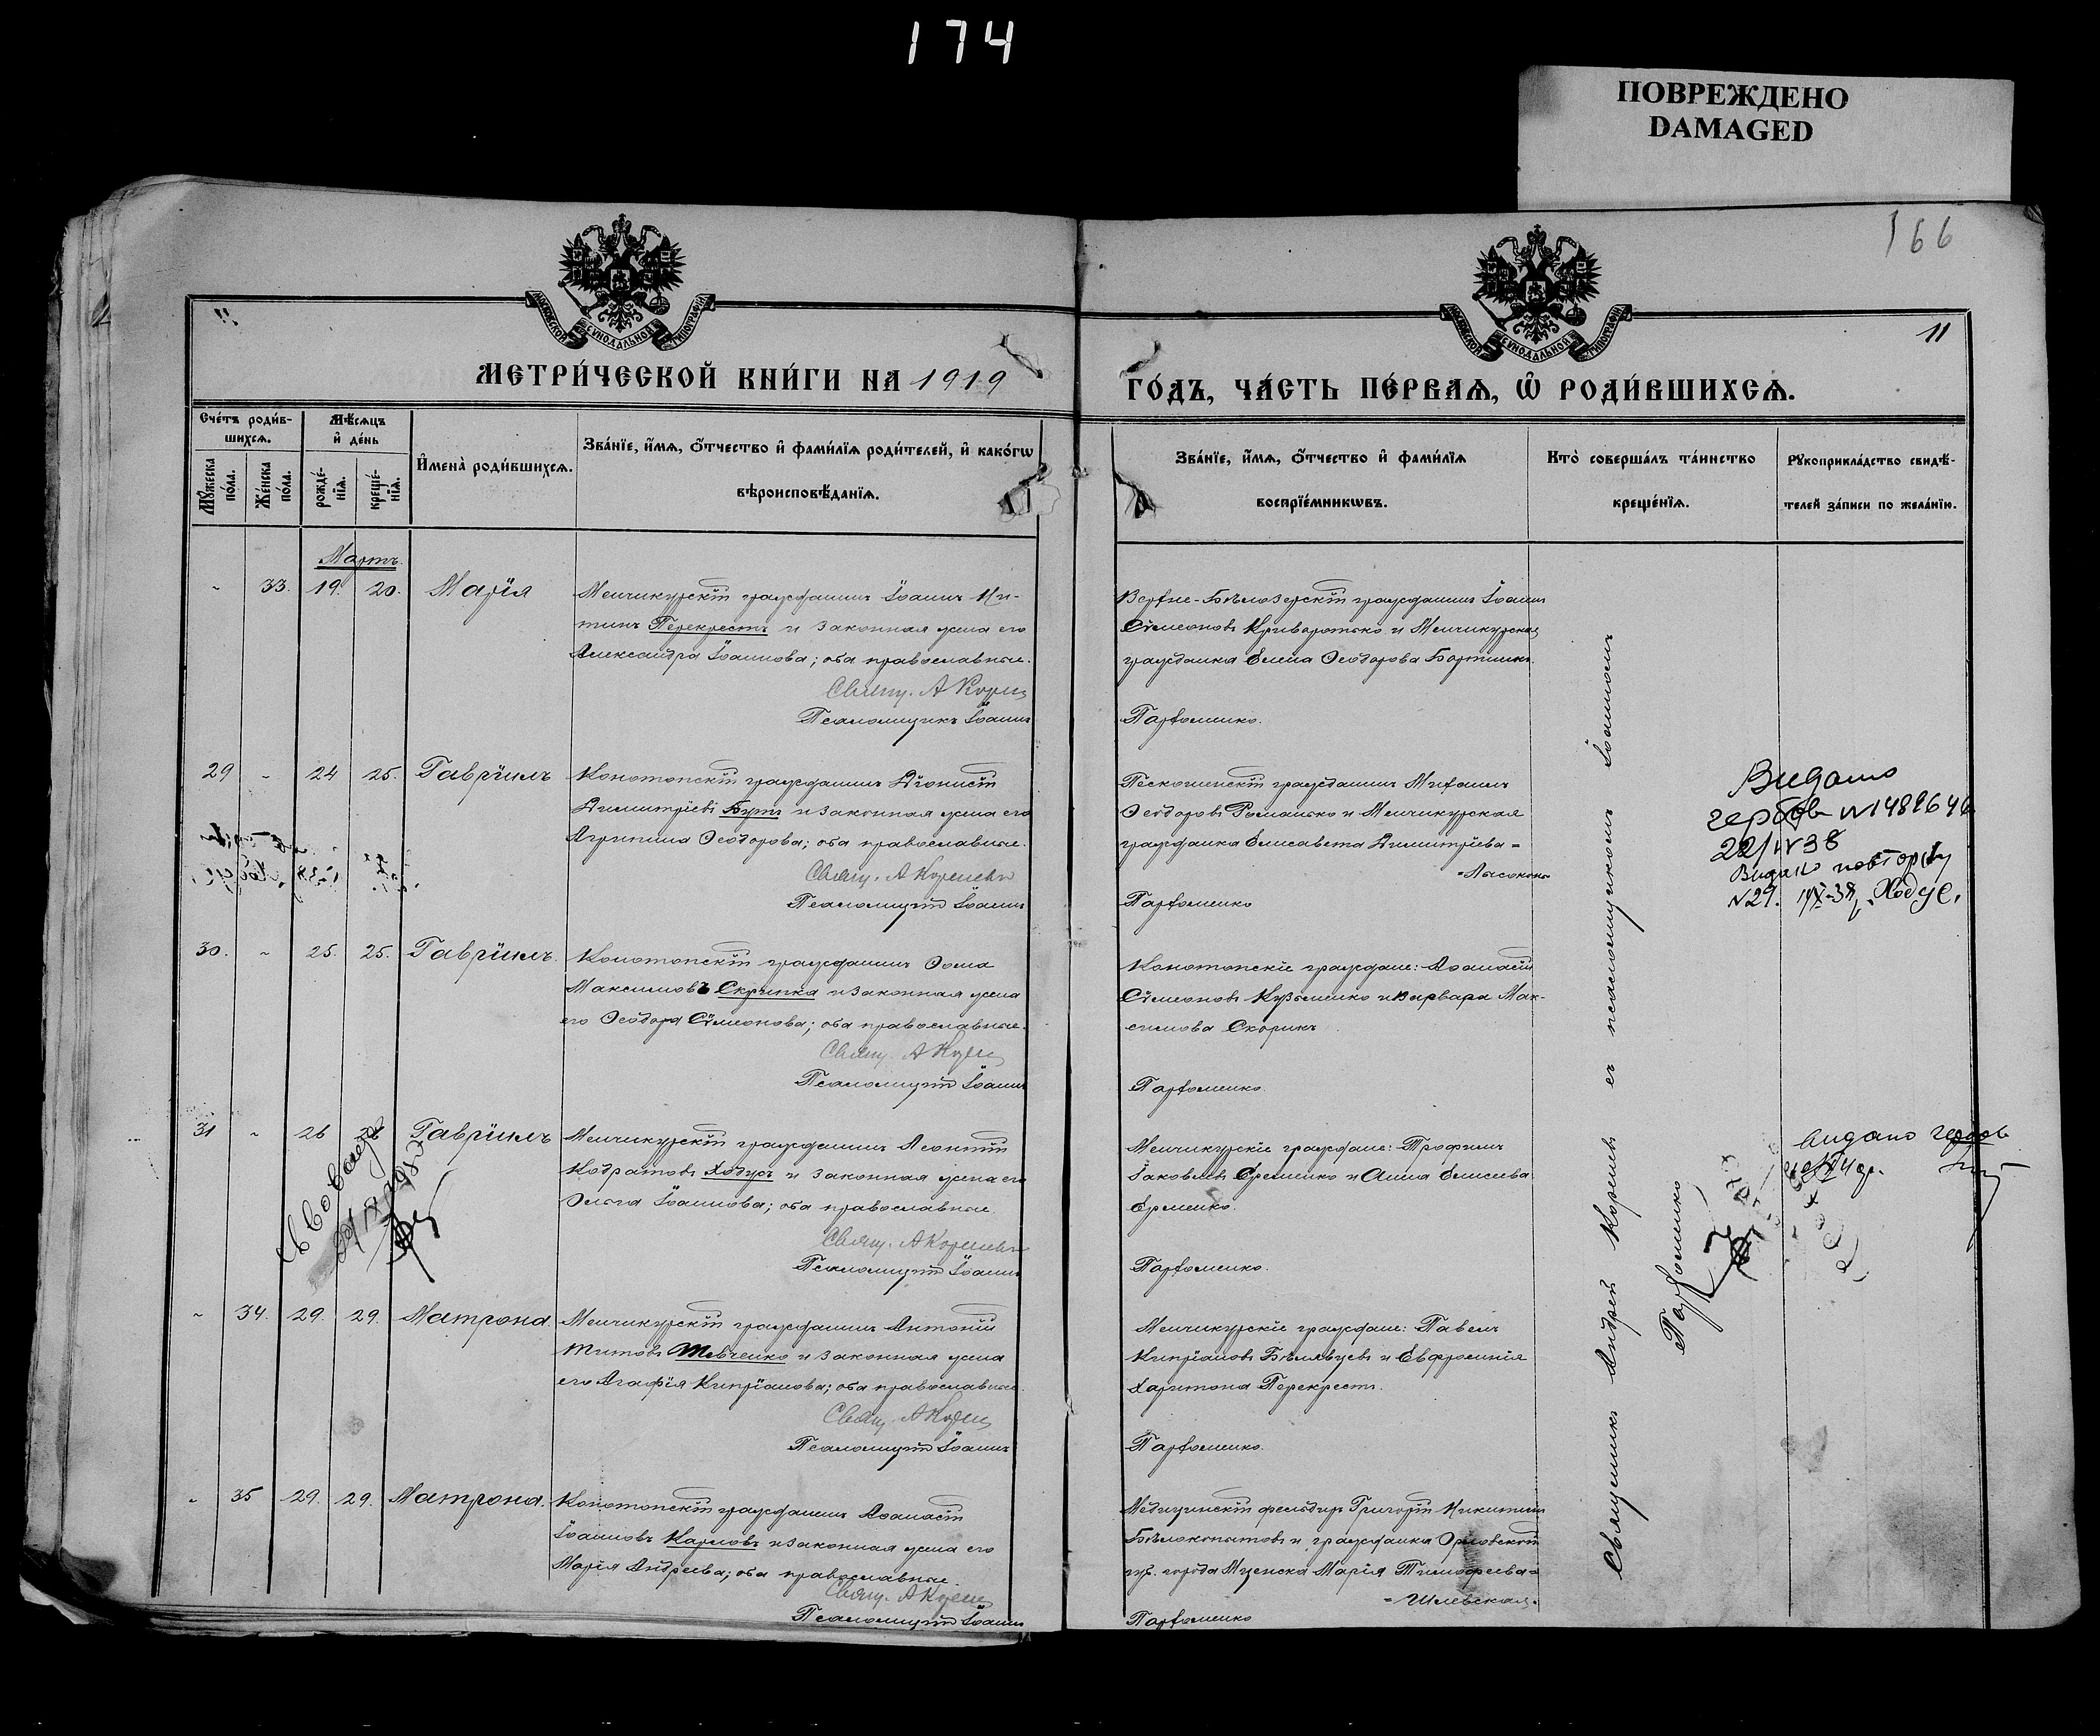 174
ПОВРЕЖДЕНО
DAMAGED
166
11
МОСКОВСКОЙ СѴНОДАЛЬНОЙ ТИПОГРАФІИ
МОСКОВСКОЙ СѴНОДАЛЬНОЙ ТИПОГРАФІИ
МЕТРИ́ЧЕСКОЙ КНИ́ГИ НА 1919
ГО́ДЪ, ЧА́СТЬ ПЕ́РВАѦ, Ѽ РОДИ́ВШИХСѦ.
Сче́тъ роди́в-
шихсѧ.
Мѣ́сѧцъ
и҆ де́нь
Мꙋ́жеска по́ла.
Же́нска по́ла.
рожде́-
нїѧ.
креще́-
нїѧ.
И҆мена̀ роди́вшихсѧ.
Зва́нїе, и҆́мѧ, ѻ҆́тчество и҆ фами́лїѧ роди́телей, и҆ како́гѡ
вѣроисповѣ́данїѧ.
Зва́нїе, и҆́мѧ, ѻ҆́тчество и҆ фами́лїѧ
воспрїе́мникѡвъ.
Кто̀ соверша́лъ та́инство
креще́нїѧ.
Рꙋкоприкла́дство свидѣ́-
телей за́писи по жела́нїю.
Мартъ.
33. 19. 20. Марія
Менчикурскій гражданинъ Іоаннъ Ни-
тинъ Перекрестъ и законная жена его
Александра Іоаннова; оба православные.
Свящ. А Корен
Псаломщикъ Іоаннъ
Верхне-Бѣлозерскій гражданинъ Іоаннъ
Сѵмеоновъ Криворотько и Менчикурская
гражданка Елена Ѳеодорова Бортникъ.
Парфоменко.
29 24 25. Гавріилъ
Конотопскій гражданинъ Діонисій
Димитріевъ Бутъ и законная жена его
Агрипина Ѳеодорова; оба православные.
Свящ. А Кореневъ
Псаломщикъ Іоаннъ
Песчонскій гражданинъ Михаилъ
Ѳеодоровъ Романько и Менчикурская
гражданка Елисавета Димитріева=
=Лысоконь
Парфоменко
Видано
гербов №1482646
22/IV 38
Видано повторну
№ 29. Ходус.
30. 25. 25. Гавріилъ.
Конотопскій гражданинъ Ѳома
Максимовъ Скрипка и законная жена
его Ѳеодора Сѵмеонова; оба православные.
Свящ. А Корен
Псаломщикъ Іоаннъ
Конотопскіе граждане: Аѳанасій
Сѵмеоновъ Кузьменко и Варвара Мак-
симова Скорикъ
Парфоменко.
31 26 26 Гавріилъ
Менчикурскій гражданинъ Леонтій
Кодратовъ Ходусъ и законная жена его
Ольга Іоаннова; оба православные.
Свящ. А Кореневъ
Псаломщикъ Іоаннъ
Менчикурскіе граждане: Трофимъ
Іаковлевъ Еременко и Анна Елисеева
Ерменко.
Парфоменко.
видано гербов
34. 29. 29. Матрона.
Менчикурскій гражданинъ Антоній
Титовъ Шевченко и законная жена
его Агафія Кипріанова; оба православные.
Свящ. А Корен
Псаломщикъ Іоаннъ
Менчикурскіе граждане: Павелъ
Кипріановъ Бѣлявцевъ и Евфросинія
Харитона Перекрестъ.
Парфоменко.
35 29. 29. Матрона.
Конотопскій гражданинъ Аѳанасій
Іоанновъ Карловъ и законная жена его
Марія Андреева; оба православные.
Свящ. А Корен
Псаломщикъ Іоаннъ
Медицинскій фельдшеръ Григорій Никитинъ
Бѣлокопытовъ и гражданка Орловской
губ. города Мценска Марія Тимофеева=
=Шлевская.
Парфоменко
Священникъ Андрей Кореневъ съ псаломщикомъ Іоанномъ
Парфоменко